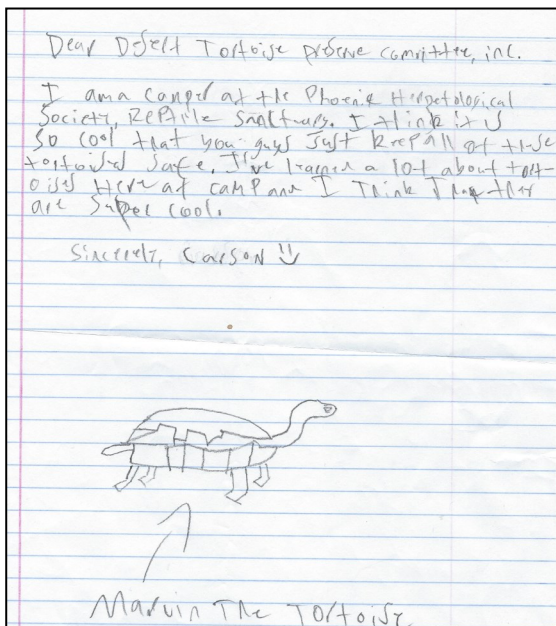 Dear Desert Tortoise preserve committee, inc.
I am a camper at the Phoenix Herpetological
Society, Reptile Sanctuary. I think it is
so cool that you guys just keep all of these
tortoises safe. I've learned a lot about tort-
oises Here at camp and I Think That they
are super cool.
Sincerely, Carson
Marvin The Tortoise